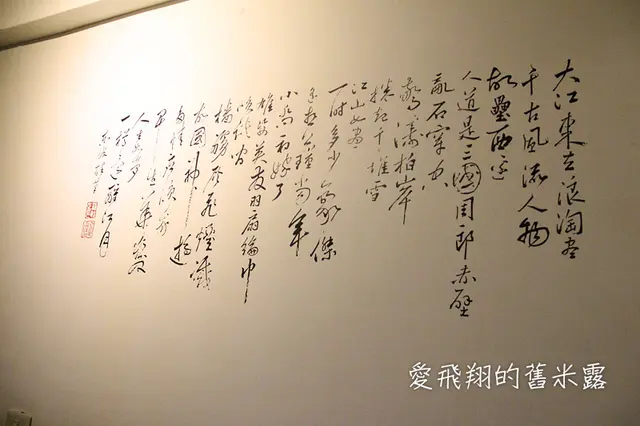 大江東去浪淘盡
千古風流人物
故壘西邊
人道是三國周郎赤壁
亂石穿空
驚濤拍岸
捲起千堆雪
江山如畫
一時多少豪傑
遙想公瑾當年
小喬初嫁了
雄姿英發羽扇綸巾
談間
檣櫓灰飛煙滅
故國神遊
多情應笑我
早生華髮
人生如夢
一樽還酹江月
愛飛翔的舊米露